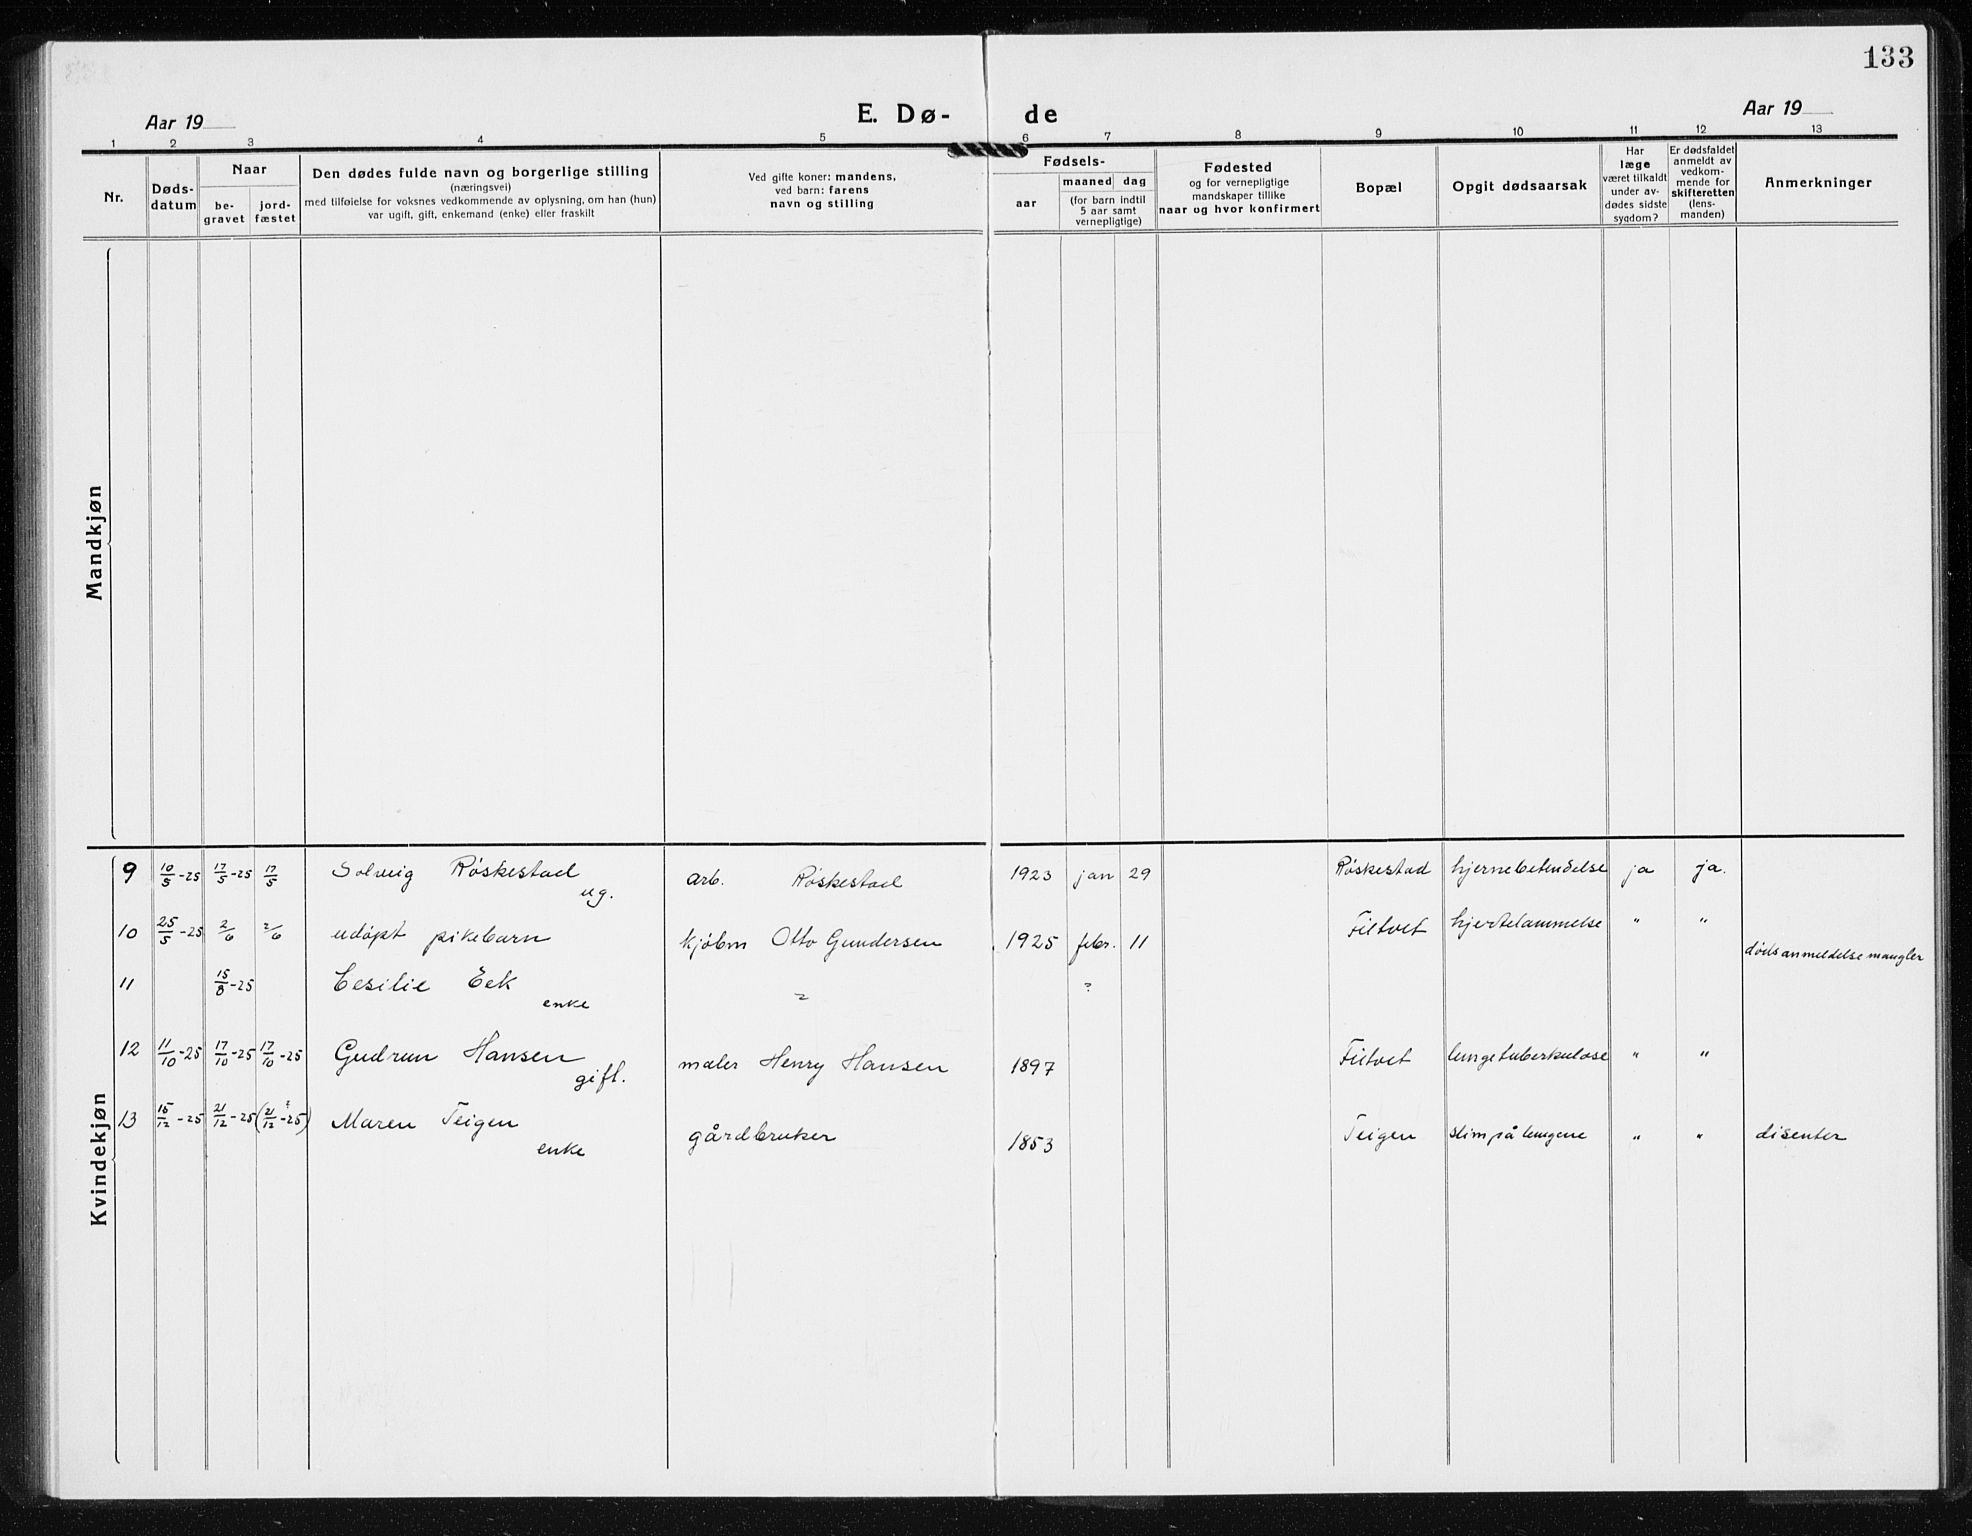 133
Aar 19
E. Dø-
de
Aar 19
1 2 3 4 5 6 7 8 9 10 11 12 13
Nr.
Døds-
datum
Naar
be-
gravet
jord-
fæstet
Den dødes fulde navn og borgerlige stilling
(næringsvei)
med tilføielse for voksnes vedkommende av oplysning, om han (hun)
var ugift, gift, enkemand (enke) eller fraskilt
Ved gifte koner: mandens,
ved barn: farens
navn og stilling
Fødsels-
aar
maaned dag
(for barn indtil
5 aar samt
vernepligtige)
Fødested
og for vernepligtige
mandskaper tillike
naar og hvor konfirmert
Bopæl
Opgit dødsaarsak
Har
læge
været tilkaldt
under av-
dødes sidste
sygdom?
Er dødsfaldet
anmeldt av
vedkom-
mende for
skifteretten
(lens-
manden)
Anmerkninger
Mandkjøn
Kvindekjøn
9 10/5-25 17/5-25 17/5 Solveig Röskestad ug. arb. Röskestad 1923 jan 29 Röskestad hjernebetendelse ja ja.
10 25/5-25 2/6 2/6 udöpt pikebarn kjöbm Otto Gundersen 1925 febr. 11 Filtvet hjertelammelse " "
11 15/8-25 Cesilie Eek enke ? ? dødsanmeldelse mangler
12 11/10-25 17/10-25 17/10-25 Gudrun Hansen gift. maler Henry Hansen 1897 Filtvet lungetuberkulose " "
13 15/12-25 21/12-25 (21/12-25)? Maren Teigen enke gårdbruker 1853 Teigen slim på lungene " " disenter